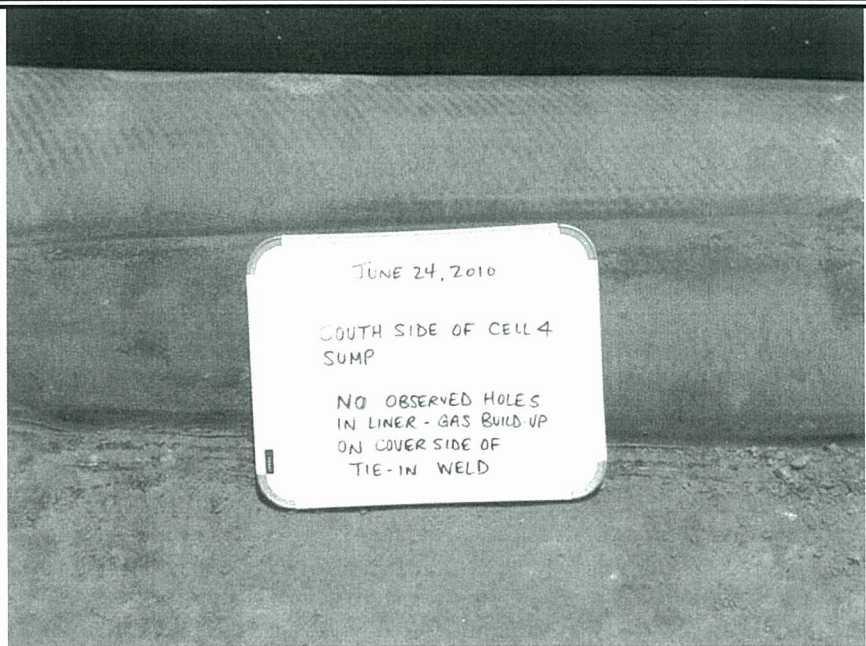 JUNE 24, 2010
SOUTH SIDE OF CELL 4
SUMP
NO OBSERVED HOLES
IN LINER - GAS BUILD-UP
ON COVER SIDE OF
TIE-IN WELD